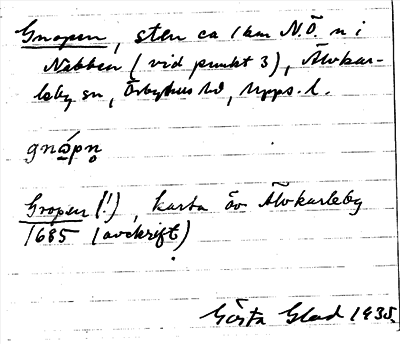 Gnopen, sten ca 1 km N.Ö. n i
Nabben (vid punkt 3), Älvkar-
leby sn, Örbyhus hd, Upps. l.
gnópn̥
Gropen (!), karta öv. Älvkarleby
1685 (avskrift)
Gösta Glad 1935.